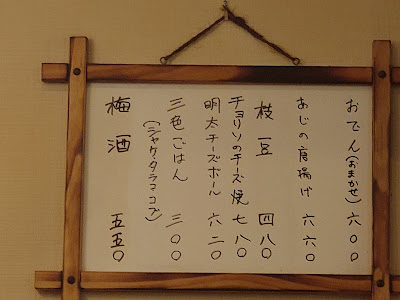 おでん(おまかせ) 六〇〇
あじの唐揚げ 六六〇
枝豆 四八〇
チョリソのチーズ焼 七八〇
明太チーズボール 六二〇
三色ごはん 三〇〇
(シャケ・タラコ・コブ)
梅酒 五五〇